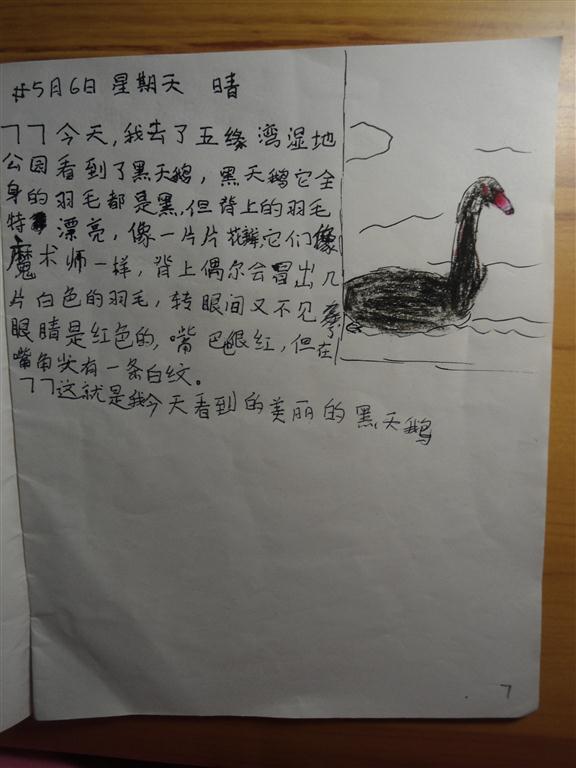 5月6日 星期天 晴
今天,我去了五缘湾湿地
公园看到了黑天鹅,黑天鹅它全
身的羽毛都是黑,但背上的羽毛
特 漂亮,像一片片花瓣,它们像
魔术师一样,背上偶尔会冒出几
片白色的羽毛,转眼间又不见了
眼睛是红色的,嘴巴很红,但在
嘴角尖有一条白纹。
这就是我今天看到的美丽的黑天鹅
7